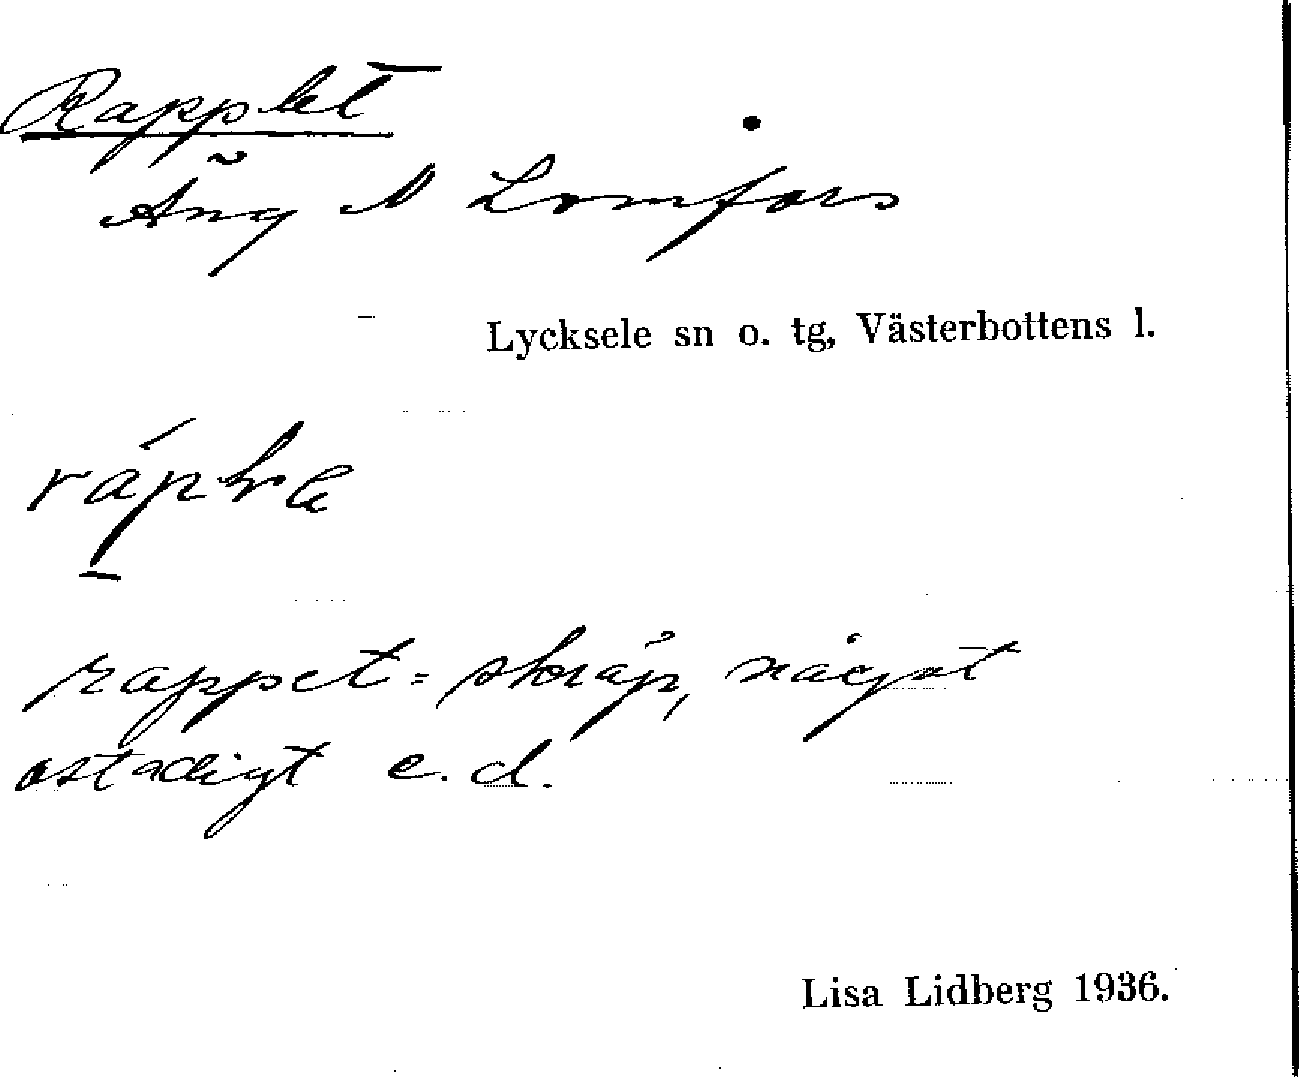 Rapplet
Äng N Lomfors
Lycksele sn o. tg, Västerbottens l.
rappet = skräp, något
ostadigt e.d.
Lisa Lidberg 1936.